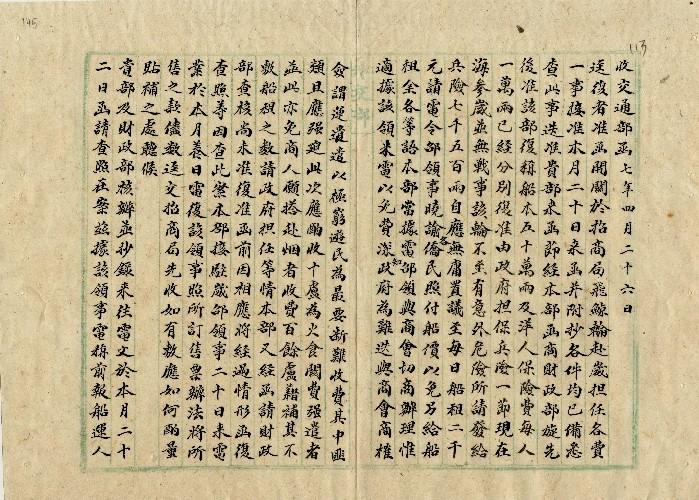 113
收交通部函七年四月二十六日
逕復者准函開關於招商局飛鯨輪赴崴担任各費
一事接准本月二十日來函并附抄各件均已備悉
查此事迭准貴部來函即經本部函商財政部旋先
後准該部復稱船本五十萬兩及洋人保險費每人
一萬兩已經分別復准由政府担保兵險一節現在
海參崴並無戰事該輪不至有意外危險所請發給
兵險七千五百兩自應無庸置議至每日船租二千
元請電令邵領事曉諭各僑民照付船價以免另給船
租金各等語本部當據電邵領與商會切商辦理惟
適據該領來電以免費漲知政府為難迭與商會商榷
僉謂運遺遣以極窮遊民為最要斷難收費其中匪
類且應強迫此次應酌收十盧為火食開費強遣者
並此亦免商人願搭赴烟者收費百餘盧藉補其不
敷船租之數請政府担任等情本部又經函請財政
部查核尚未復准函前因相應將經過情形函復
查照等因查此案本部接駐崴邵領事二十日來電
業於本月養日電復該領事照所訂售票辦法將所
售之款儘數逕交招商局先收如有敷應如何酌量
貼補之處聽候
貴部及財政部核辦並抄錄來往電文於本月二十
二日函請查照在案茲據該領事電稱前報船運人
145